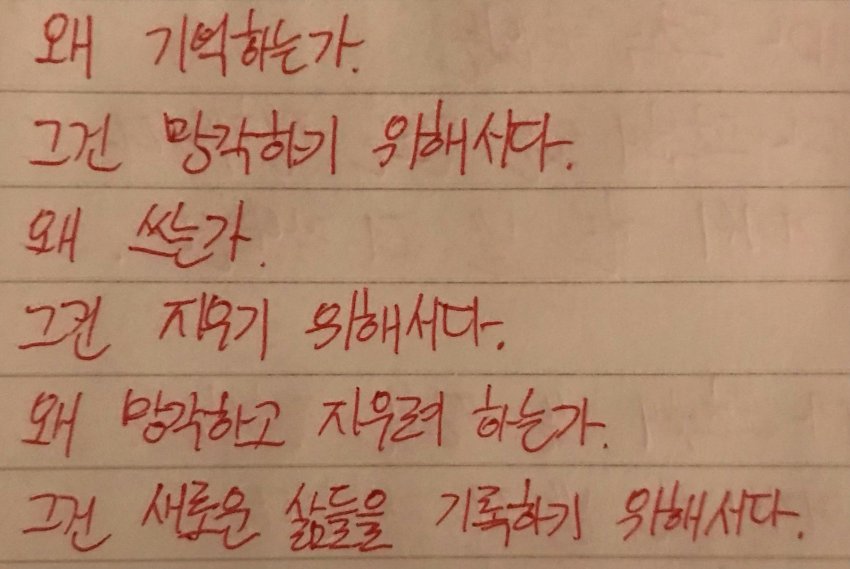 왜 기억하는가.
그건 망각하기 위해서다.
왜 쓰는가.
그건 지우기 위해서다.
왜 망각하고 지우려 하는가.
그건 새로운 삶들을 기록하기 위해서다.